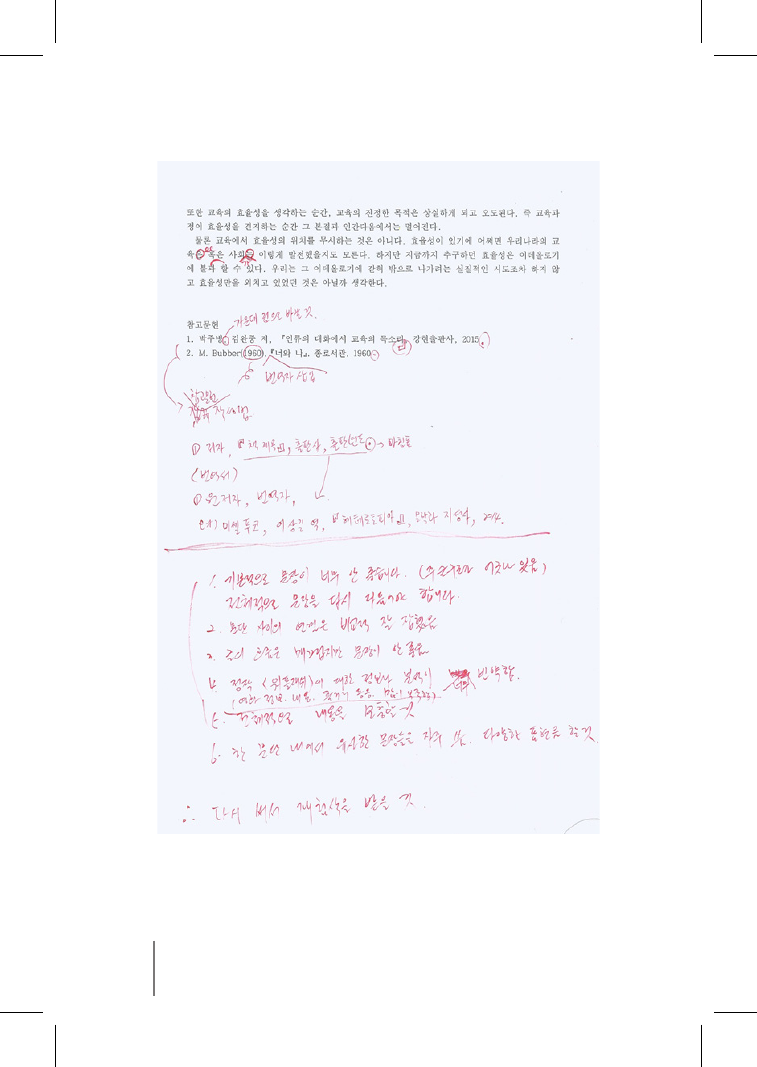 또한 교육의 효율성을 생각하는 순간, 교육의 진정한 목적은 상실하게 되고 오도된다. 즉 교육과
정이 효율성을 견지하는 순간 그 본질과 인간다움에서는 멀어진다.
물론 교육에서 효율성의 위치를 무시하는 것은 아니다. 효율성이 있기에 어쩌면 우리나라의 교
육 혹은 사회 이렇게 발전했을지도 모른다. 하지만 지금까지 추구하던 효율성은 이데올로기
에 불과 할 수 있다. 우리는 그 이데올로기에 갇혀 밖으로 나가려는 실질적인 시도조차 하지 않
고 효율성만을 외치고 있었던 것은 아닐까 생각한다.
참고문헌
가운데 점으로 바꿀 것.
1. 박주병, 김완종 저, 『인류의 대화에서 교육의 목소리, 강현출판사, 2015.
2. M. Bubber(1960). 『너와 나』. 종로서관. 1960.
번역자 삽입
참고문헌
작성법
① 저자, 『책 제목』, 출판사, 출판년도. → 마침표
<번역서>
① 원저자, 번역자,
예) 미셸 푸코, 이상길 역, 『헤테로토피아』, 문학과 지성사, 2014.
1. 기본적으로 문장이 너무 안 좋습니다. (주술구조가 어긋나 있음)
전체적으로 문장을 다시 다듬어야 합니다.
2. 문단 사이의 연결은 비교적 잘 잡혔음
3. 글의 흐름은 매끄럽지만 문장이 안 좋음
4. 정작 <위플래쉬>에 대한 정보나 분석이 너무 빈약함.
(영화 정보, 내용, 등등 많이 부족함)
5. 전체적으로 내용을 보충할 것
6. 한 문단 내에서 유사한 문장들을 자주 씀. 다양한 표현을 할 것.
∴ 다시 써서 재첨삭을 받을 것.